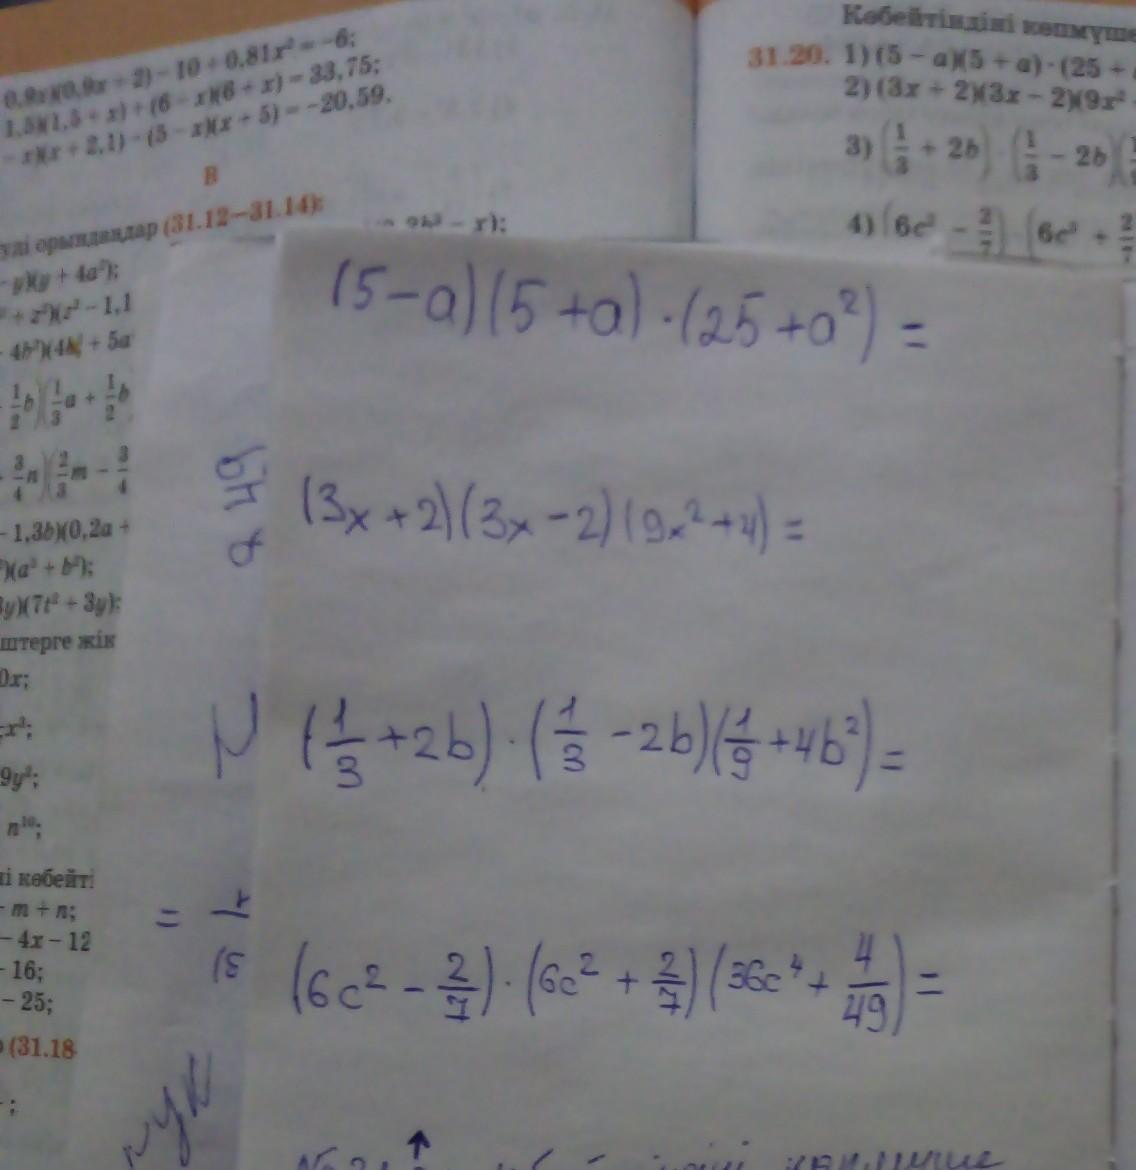 0,9x)(0,9x + 2) − 10 + 0,81x² = −6;
1,5)(1,5 + x) + (6 − x)(6 + x) = 33,75;
− x)(x + 2,1) − (5 − x)(x + 5) = −20,59.
В
орындаңдар (31.12−31.14):
− y)(y + 4a²);
+ z²)(z² − 1,1
− 4b²)(4b + 5a
1/2 b)(1/3 a + 1/2 b
3/4 n)(2/3 m − 3/4
− 1,3b)(0,2a +
)(a³ + b²);
3y)(7t² + 3y);
штерге жік
0x;
x²;
9y²;
n¹⁰;
і көбейті
− m + n;
− 4x − 12
− 16;
− 25;
(31.18
;
Көбейтіндіні көпмүше
31.20. 1) (5 − a)(5 + a) · (25 +
2) (3x + 2)(3x − 2)(9x²
3) (1/3 + 2b) · (1/3 − 2b)(
4) (6c² − 2/7) · (6c² + 2/7
(5−a)(5+a)·(25+a²) =
(3x+2)(3x−2)(9x²+4) =
(1/3+2b)·(1/3−2b)(1/9+4b²) =
(6c²−2/7)·(6c²+2/7)(36c⁴+4/49) =